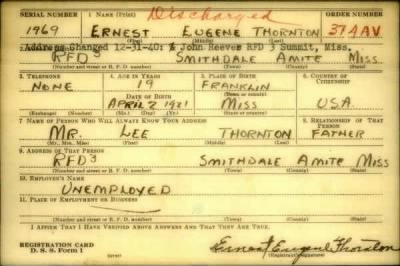 SERIAL NUMBER 1. NAME (Print) Discharged ORDER NUMBER
1969 ERNEST EUGENE THORNTON 374AV
(First) (Middle) (Last)
Address Changed 12-31-40: % John Reeves RFD 3 Summit, Miss.
RFD 3 SMITHDALE AMITE MISS
(Number and street or R. F. D. number) (Town) (County) (State)
3. TELEPHONE 4. AGE IN YEARS 5. PLACE OF BIRTH 6. COUNTRY OF CITIZENSHIP
NONE 19 FRANKLIN
(Town or county)
DATE OF BIRTH
APRIL 2 1921 MISS U.S.A.
(Exchange) (Number) (Mo.) (Day) (Yr.) (State or country)
7. NAME OF PERSON WHO WILL ALWAYS KNOW YOUR ADDRESS 8. RELATIONSHIP OF THAT PERSON
MR. LEE THORNTON FATHER
(Mr., Mrs., Miss) (First) (Middle) (Last)
9. ADDRESS OF THAT PERSON
RFD 3 SMITHDALE AMITE MISS
(Number and street or R. F. D. number) (Town) (County) (State)
10. EMPLOYER'S NAME
UNEMPLOYED
11. PLACE OF EMPLOYMENT OR BUSINESS
(Number and street or R. F. D. number) (Town) (County) (State)
I AFFIRM THAT I HAVE VERIFIED ABOVE ANSWERS AND THAT THEY ARE TRUE.
REGISTRATION CARD
D. S. S. Form 1 Ernest Eugene Thornton
(Registrant's signature)